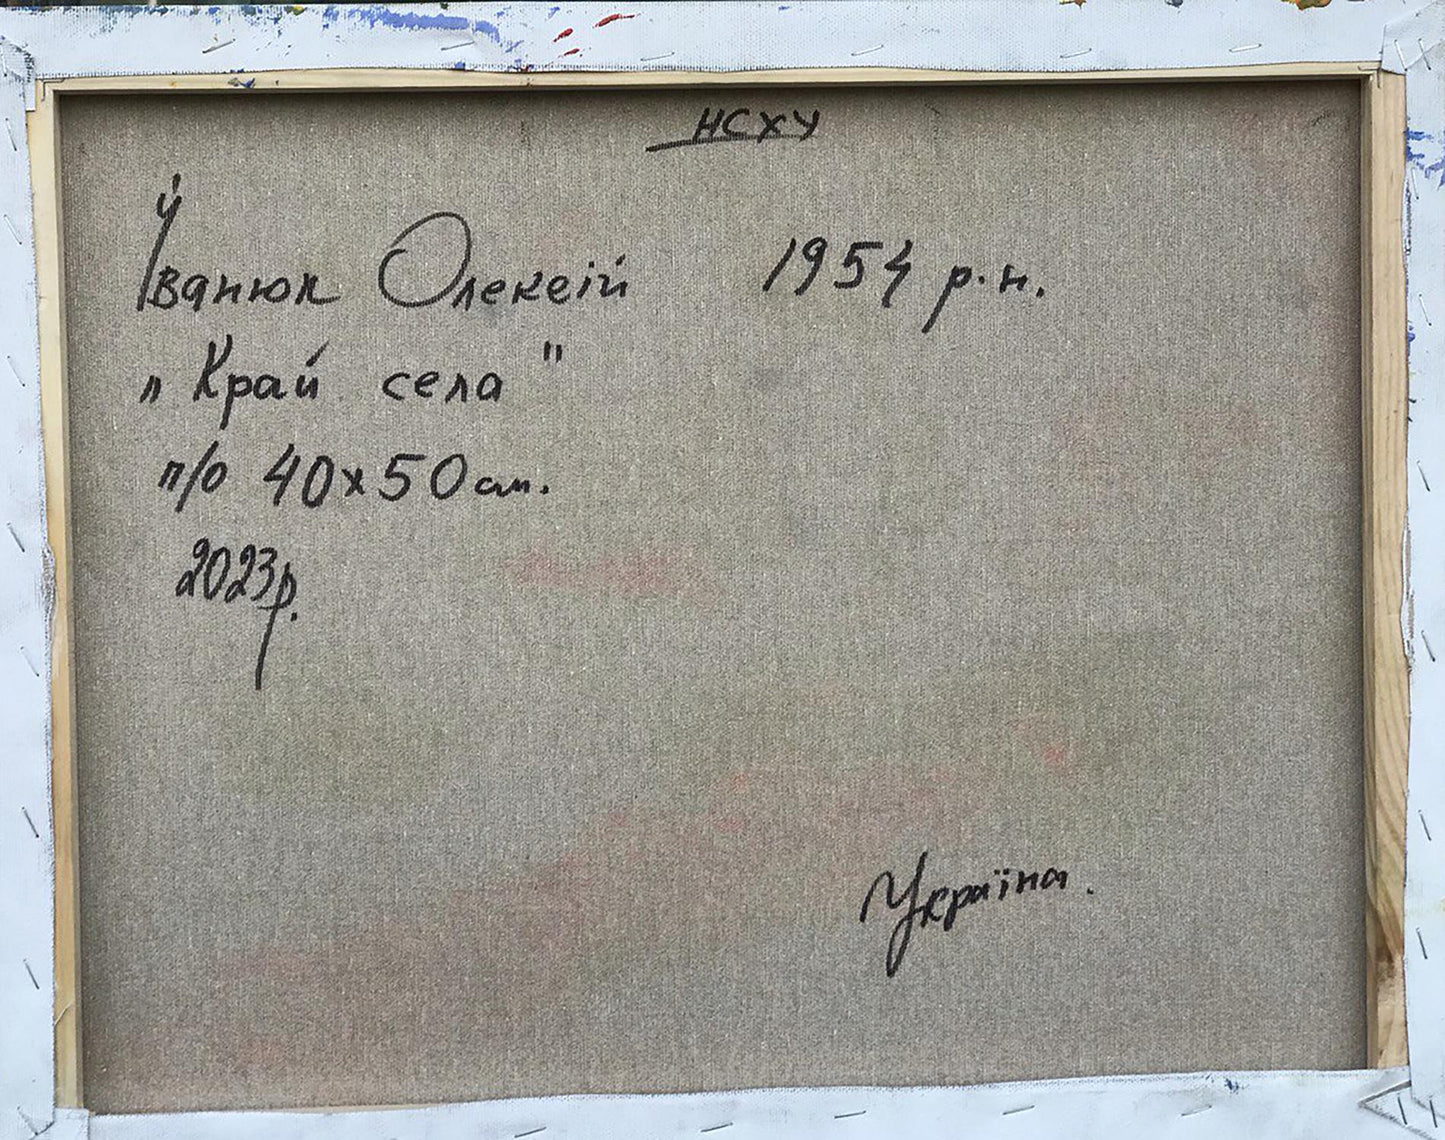 НСХУ
Іванюк Олексій 1954 р.н.
„Край села"
п/о 40х50 см.
2023р.
Україна.